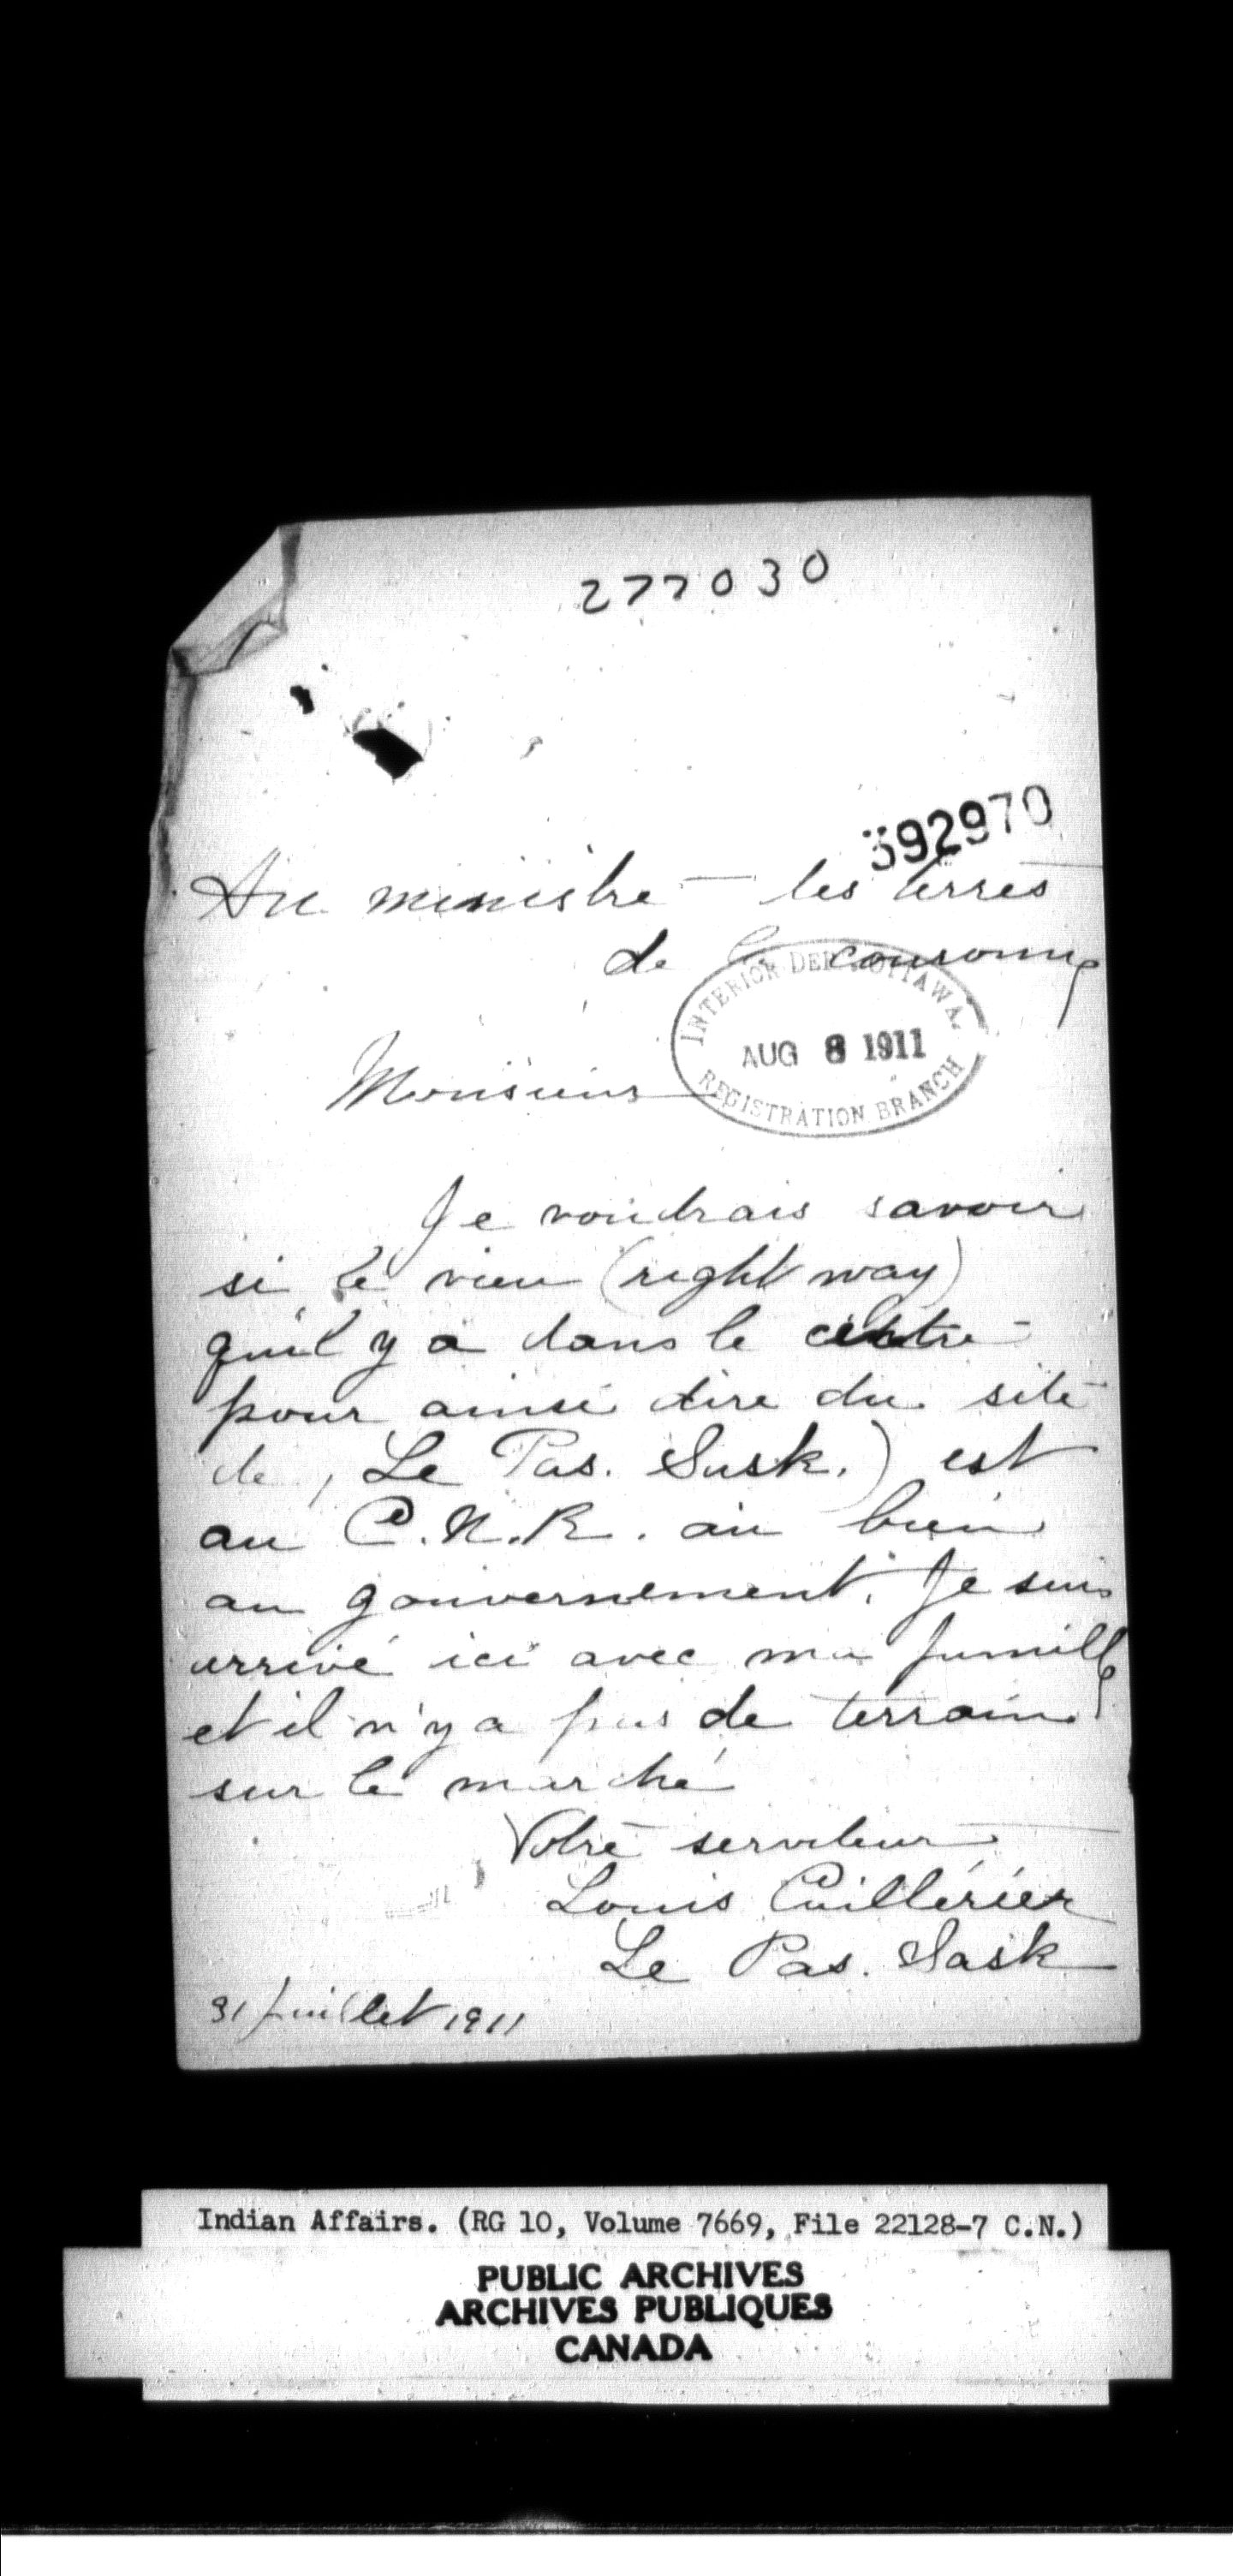 277030
392970
Au ministre - les terres
de la couronne
INTERIOR DEPT. OTTAWA.
AUG 8 1911
REGISTRATION BRANCH
Monsieur
Je voudrais savoir
si le vieu (right way)
qu'il y a dans le centre
pour ainsi dire du site
de, Le Pas. Sask.) est
au C.N.R. au bien
au gouvernement. Je suis
arrivé ici avec ma famille
et il n'y a pas de terrain
sur le marché
Votre serviteur
Louis Cuillérier
Le Pas. Sask
31 Juillet 1911
Indian Affairs. (RG 10, Volume 7669, File 22128-7 C.N.)
PUBLIC ARCHIVES
ARCHIVES PUBLIQUES
CANADA